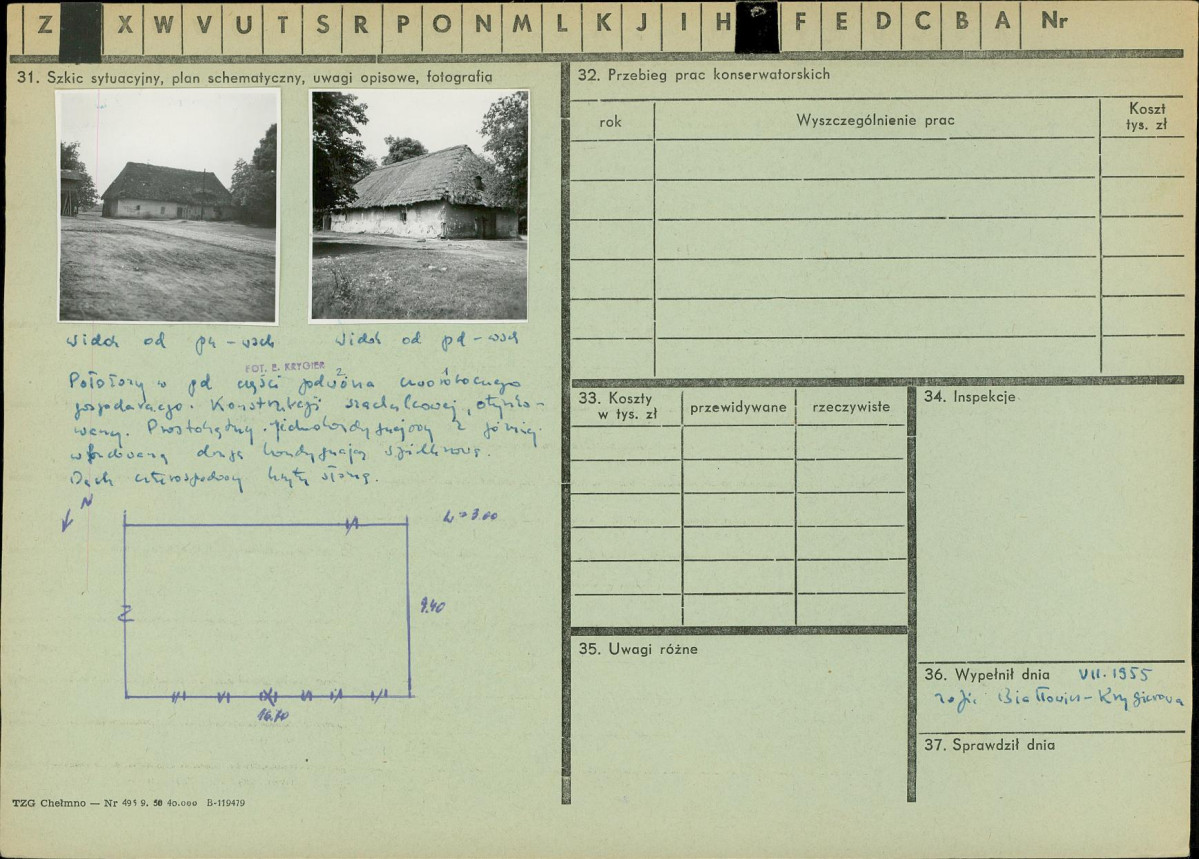 Z X W V U T S R P O N M L K J I H F E D C B A Nr
31. Szkic sytuacyjny, plan schematyczny, uwagi opisowe, fotografia
widok od pn-wsch
widok od pd-wsch
FOT. E. KRYGIER
Położony w pd części podwórza czworobocznego
gospodarczego. Konstrukcji szachulcowej, otynko-
wany. Prostokątny, jednokondygnacjowy z
drugą kondygnacją
Dach czterospadowy kryty słomą.
N
h = 3.00
9.40
16.70
TZG Chełmno — Nr 495 9. 58 40.000 B-119479
32. Przebieg prac konserwatorskich
rok
Wyszczególnienie prac
Koszt
tys. zł
33. Koszty
w tys. zł
przewidywane
rzeczywiste
34. Inspekcje
35. Uwagi różne
36. Wypełnił dnia VII. 1955
Białłowicz-Krygierowa
37. Sprawdził dnia